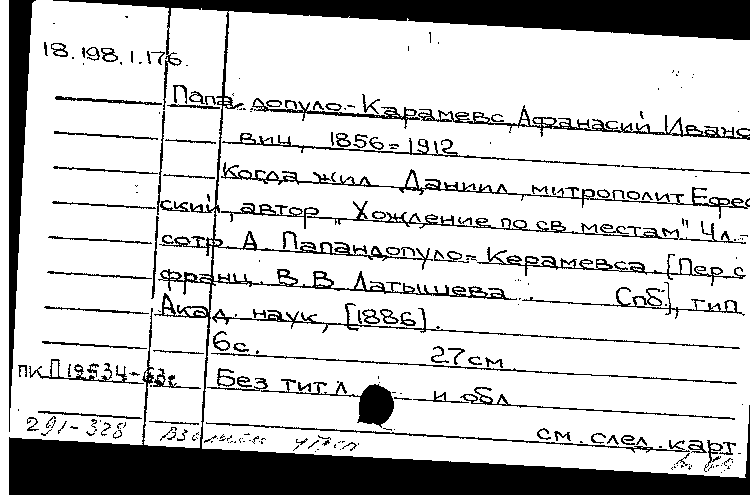 1.
18.198.1.176.
Папа допуло-Карамевс, Афанасий Ивано
вич, 1856=1912
Когда жил Даниил, митрополит Ефес
ский, автор „Хождение по св. местам" Чл.-
сотр А. Папандопуло=Керамевса. [Пер с
франц. В. В. Латышева. Спб], тип.
Акад. наук, [1886].
6с. 27см
ПК П19534-63г Без тит л. и обл
см. след. карт
291-328